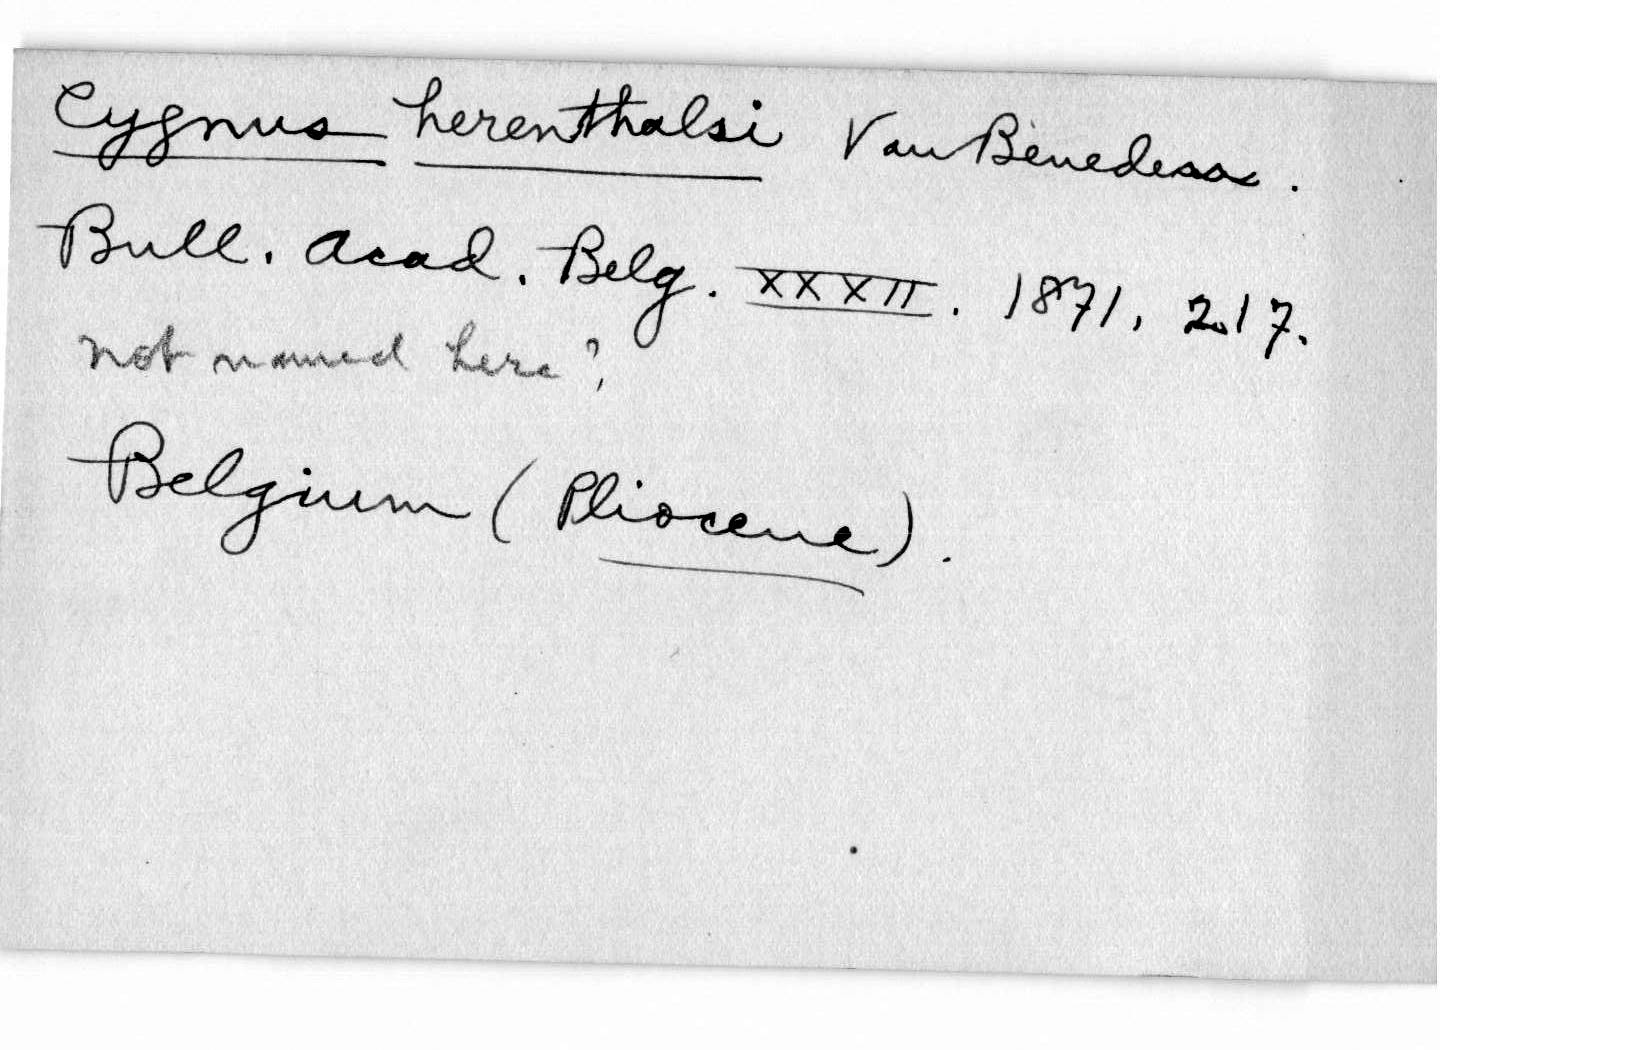 Cygnus herenthalsi Van Beneden.
Bull. Acad. Belg. XXXII. 1871, 217.
not named here?
Belgium (Pliocene).